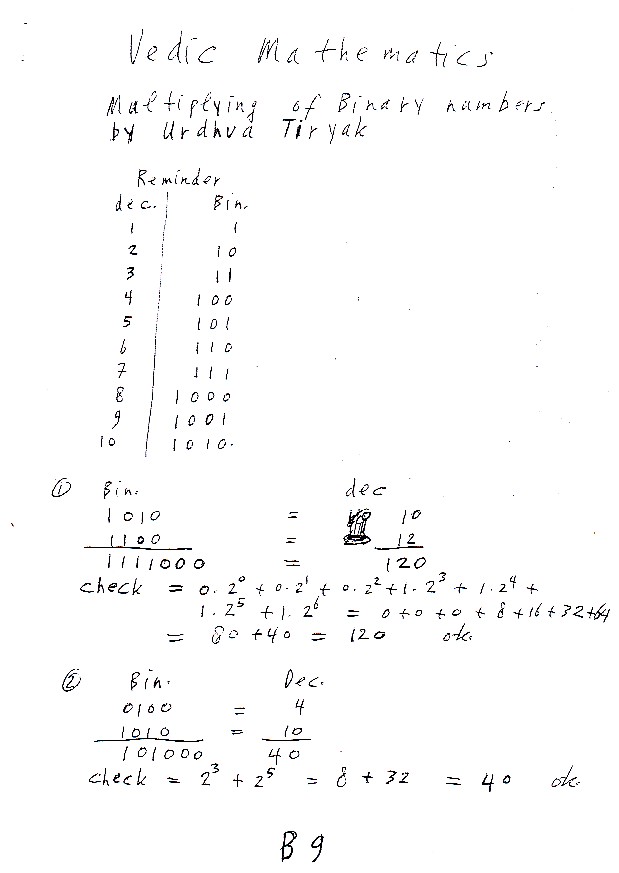 Vedic Mathematics
Multiplying of Binary numbers.
by Urdhva Tiryak
Reminder
dec. Bin.
1 1
2 10
3 11
4 100
5 101
6 110
7 111
8 1000
9 1001
10 1010.
① Bin. dec
1010 = 10
1100 = 12
1111000 = 120
check = 0.2⁰ + 0.2¹ + 0.2² + 1.2³ + 1.2⁴ +
1.2⁵ + 1.2⁶ = 0 + 0 + 0 + 8 + 16 + 32 + 64
= 80 + 40 = 120 ok.
② Bin. Dec.
0100 = 4
1010 = 10
101000 40
check = 2³ + 2⁵ = 8 + 32 = 40 ok.
B 9